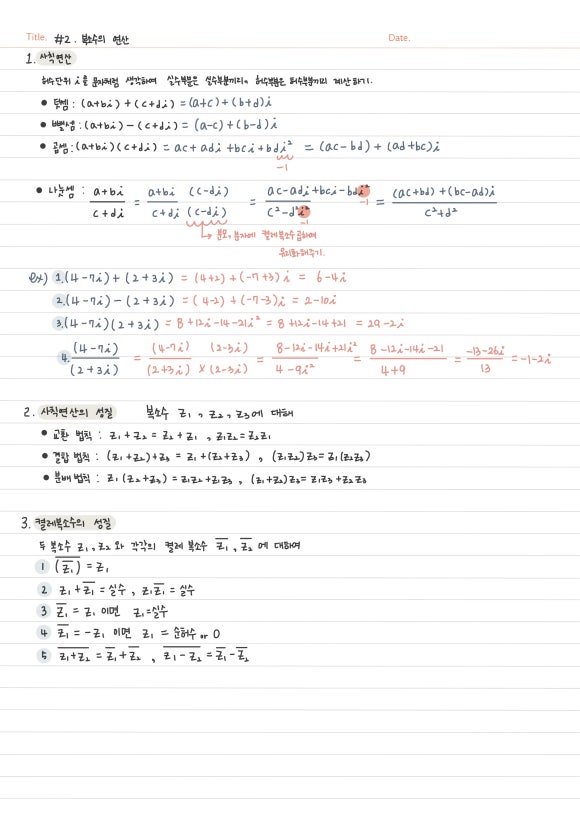 Title. #2. 복소수의 연산
Date.
1. 사칙연산
허수단위 i를 문자처럼 생각하여 실수부분은 실수부분끼리, 허수부분은 허수부분끼리 계산하기.
● 덧셈 : (a+bi) + (c+di) = (a+c) + (b+d)i
● 뺄셈 : (a+bi) - (c+di) = (a-c) + (b-d)i
● 곱셈 : (a+bi)(c+di) = ac + adi + bci + bdi² = (ac-bd) + (ad+bc)i
-1
● 나눗셈 : (a+bi)/(c+di) = (a+bi)(c-di)/(c+di)(c-di) = (ac-adi+bci-bdi²)/(c²-d²i²) = ((ac+bd)+(bc-ad)i)/(c²+d²)
-1
-1
↳ 분모, 분자에 켤레복소수 곱하여
유리화해주기.
ex) 1. (4-7i) + (2+3i) = (4+2) + (-7+3)i = 6-4i
2. (4-7i) - (2+3i) = (4-2) + (-7-3)i = 2-10i
3. (4-7i)(2+3i) = 8+12i-14-21i² = 8+12i-14+21 = 29-2i
4. (4-7i)/(2+3i) = (4-7i)/(2+3i) × (2-3i)/(2-3i) = (8-12i-14i+21i²)/(4-9i²) = (8-12i-14i-21)/(4+9) = (-13-26i)/13 = -1-2i
2. 사칙연산의 성질 복소수 z₁, z₂, z₃에 대해
● 교환 법칙 : z₁+z₂ = z₂+z₁, z₁z₂ = z₂z₁
● 결합 법칙 : (z₁+z₂)+z₃ = z₁+(z₂+z₃), (z₁z₂)z₃ = z₁(z₂z₃)
● 분배 법칙 : z₁(z₂+z₃) = z₁z₂+z₁z₃, (z₁+z₂)z₃ = z₁z₃+z₂z₃
3. 켤레복소수의 성질
두 복소수 z₁, z₂와 각각의 켤레 복소수 z̅₁, z̅₂에 대하여
1 \overline{(z̅₁)} = z₁
2 z₁+z̅₁ = 실수, z₁z̅₁ = 실수
3 z̅₁ = z₁ 이면 z₁=실수
4 z̅₁ = -z₁ 이면 z₁ = 순허수 or 0
5 \overline{z₁+z₂} = z̅₁+z̅₂, \overline{z₁-z₂} = z̅₁-z̅₂